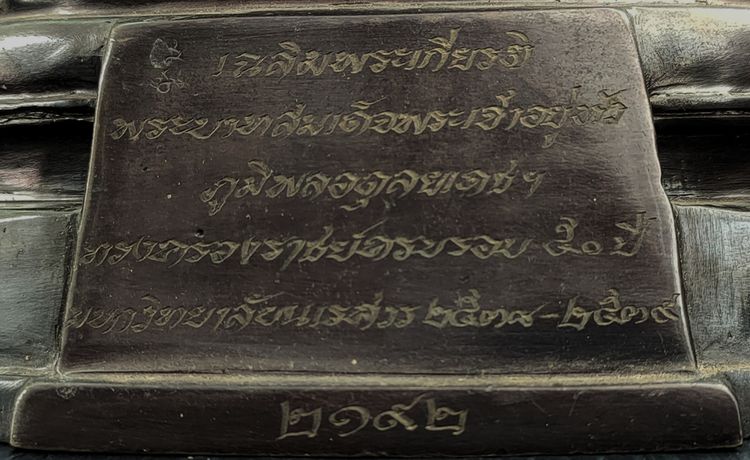 เฉลิมพระเกียรติ
พระบาทสมเด็จพระเจ้าอยู่หัว
ภูมิพลอดุลยเดชฯ
ทรงครองราชย์ครบรอบ ๕๐ ปี
มหาวิทยาลัยนเรศวร ๒๕๓๘-๒๕๓๙
๒๑๙๒